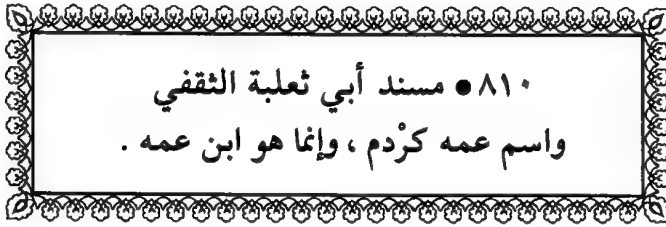 ٨١٠ ● مسند أبي ثعلبة الثقفي
واسم عمه كرْدم ، وإنما هو ابن عمه .